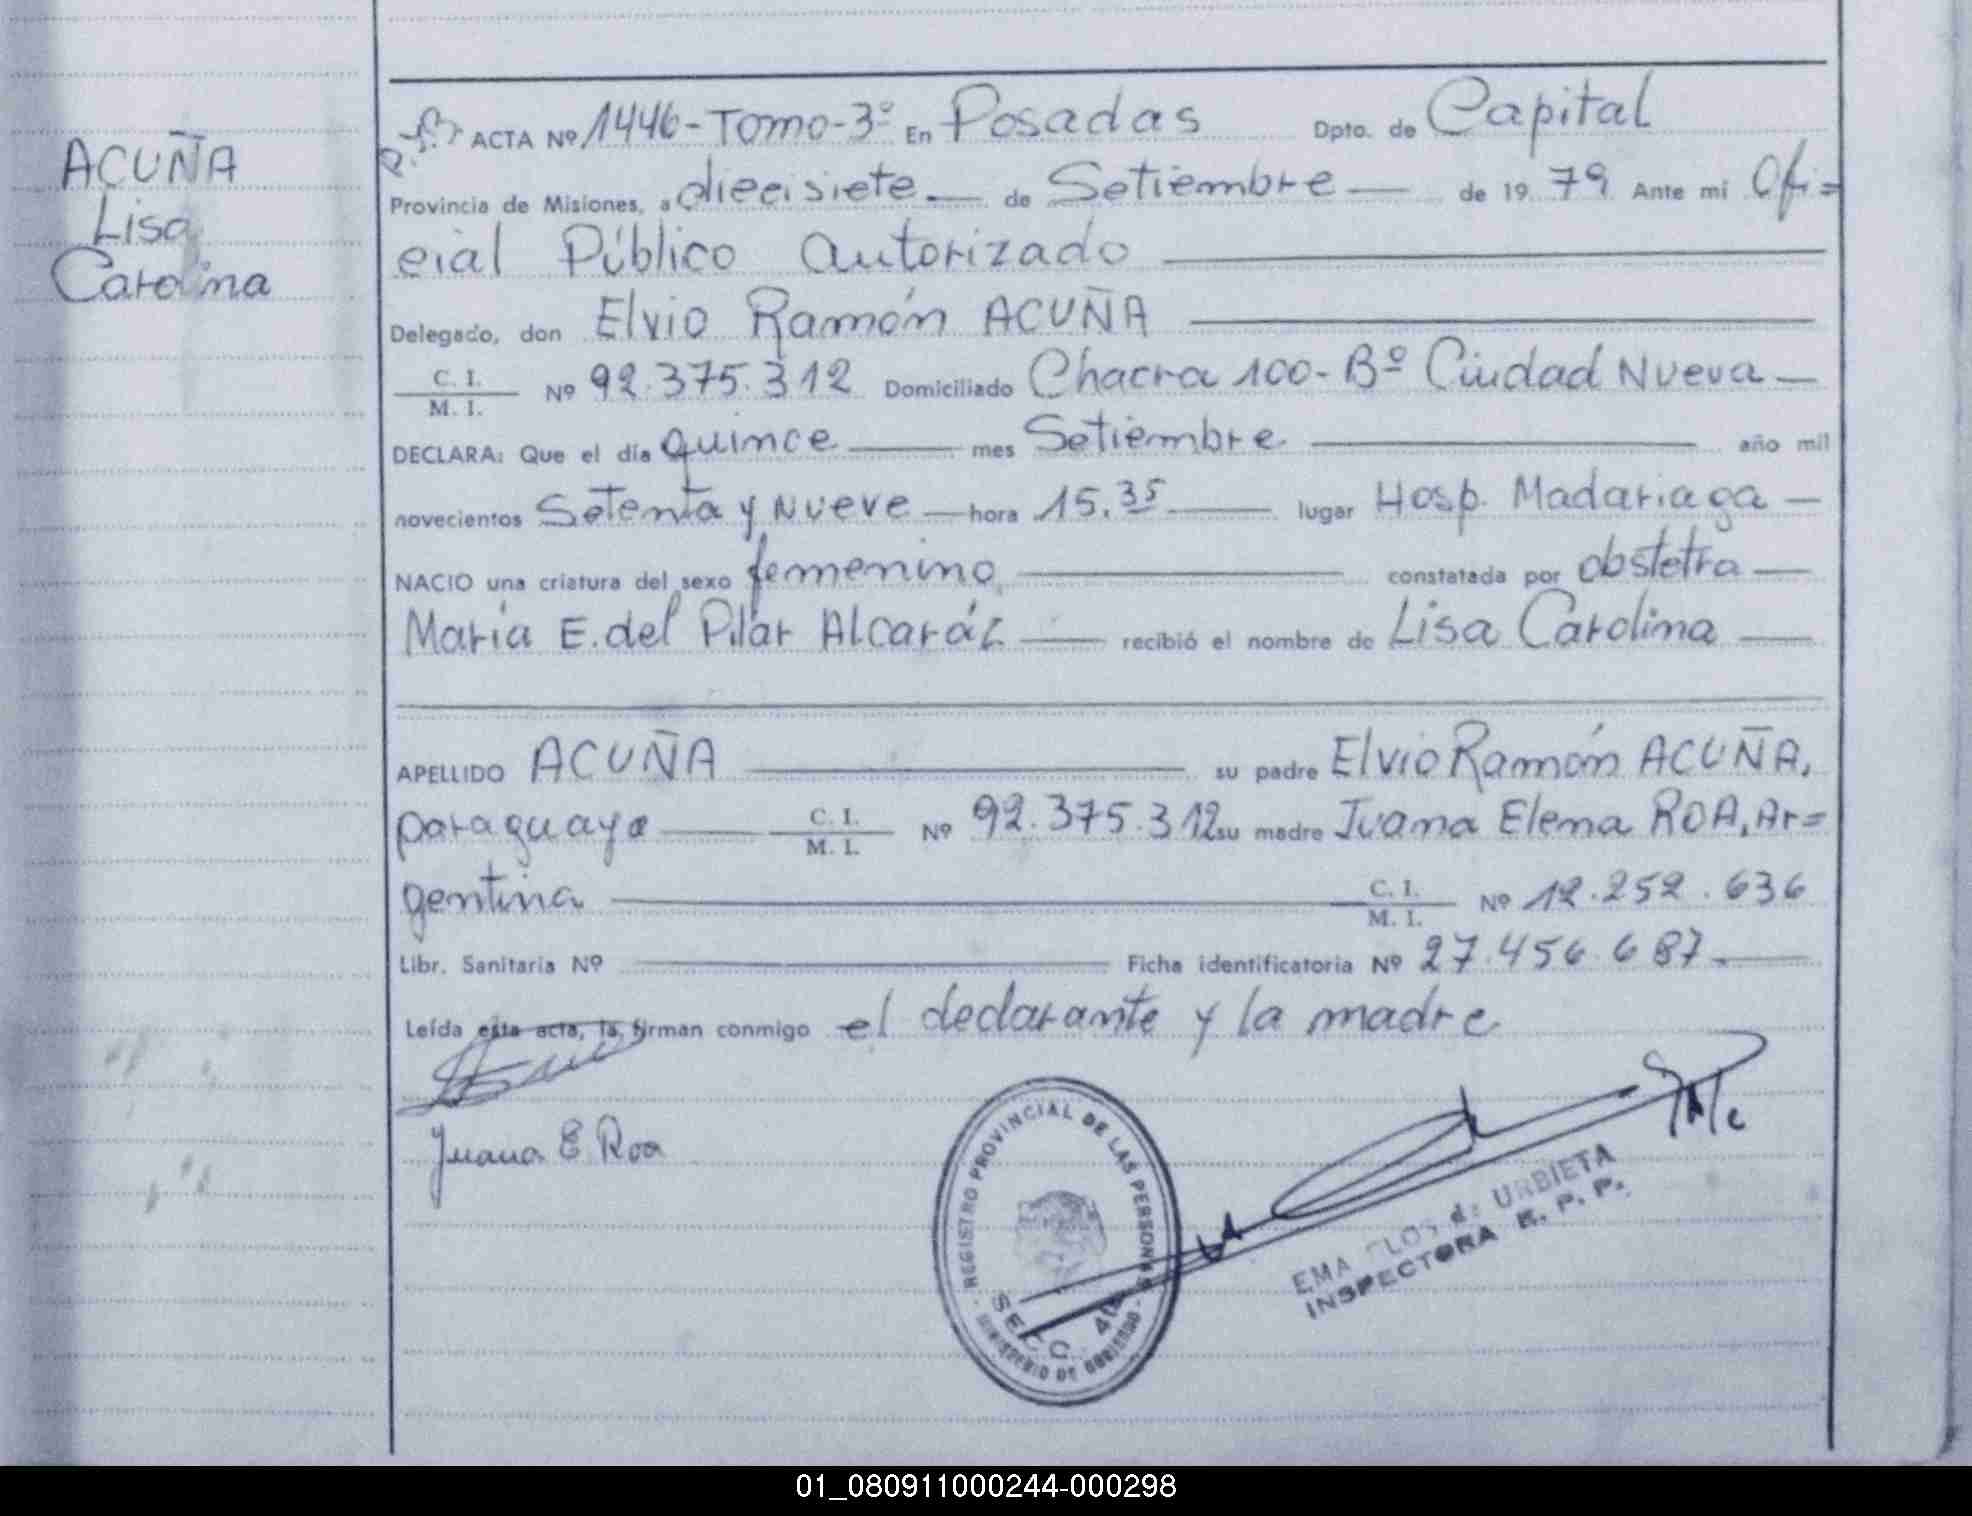 ACUÑA
Lisa
Carolina
ACTA Nº 1446-Tomo-3º En Posadas Dpto. de Capital
Provincia de Misiones, a diecisiete — de Setiembre — de 1979 Ante mi Ofi=
cial Público Autorizado
Delegado, don Elvio Ramón ACUÑA
C. I.
M. I. Nº 92.375.312 Domiciliado Chacra 100-Bº Ciudad Nueva —
DECLARA: Que el día quince — mes Setiembre — año mil
novecientos Setenta y Nueve — hora 15.35 — lugar Hosp. Madariaga —
NACIO una criatura del sexo femenino — constatada por obstetra —
María E. del Pilar Alcaráz — recibió el nombre de Lisa Carolina —
APELLIDO ACUÑA — su padre Elvio Ramón ACUÑA,
paraguaya — C. I.
M. I. Nº 92.375.312 su madre Juana Elena ROA, Ar=
gentina — C. I.
M. I. Nº 12.252.636
Libr. Sanitaria Nº — Ficha identificatoria Nº 27.456.687. —
Leída esta acta, la firman conmigo el declarante y la madre
Juana E Roa
REGISTRO PROVINCIAL DE LAS PERSONAS
SECC.
MINISTERIO DE GOBIERNO
EMA de URBIETA
INSPECTORA R. P. P.
01_080911000244-000298